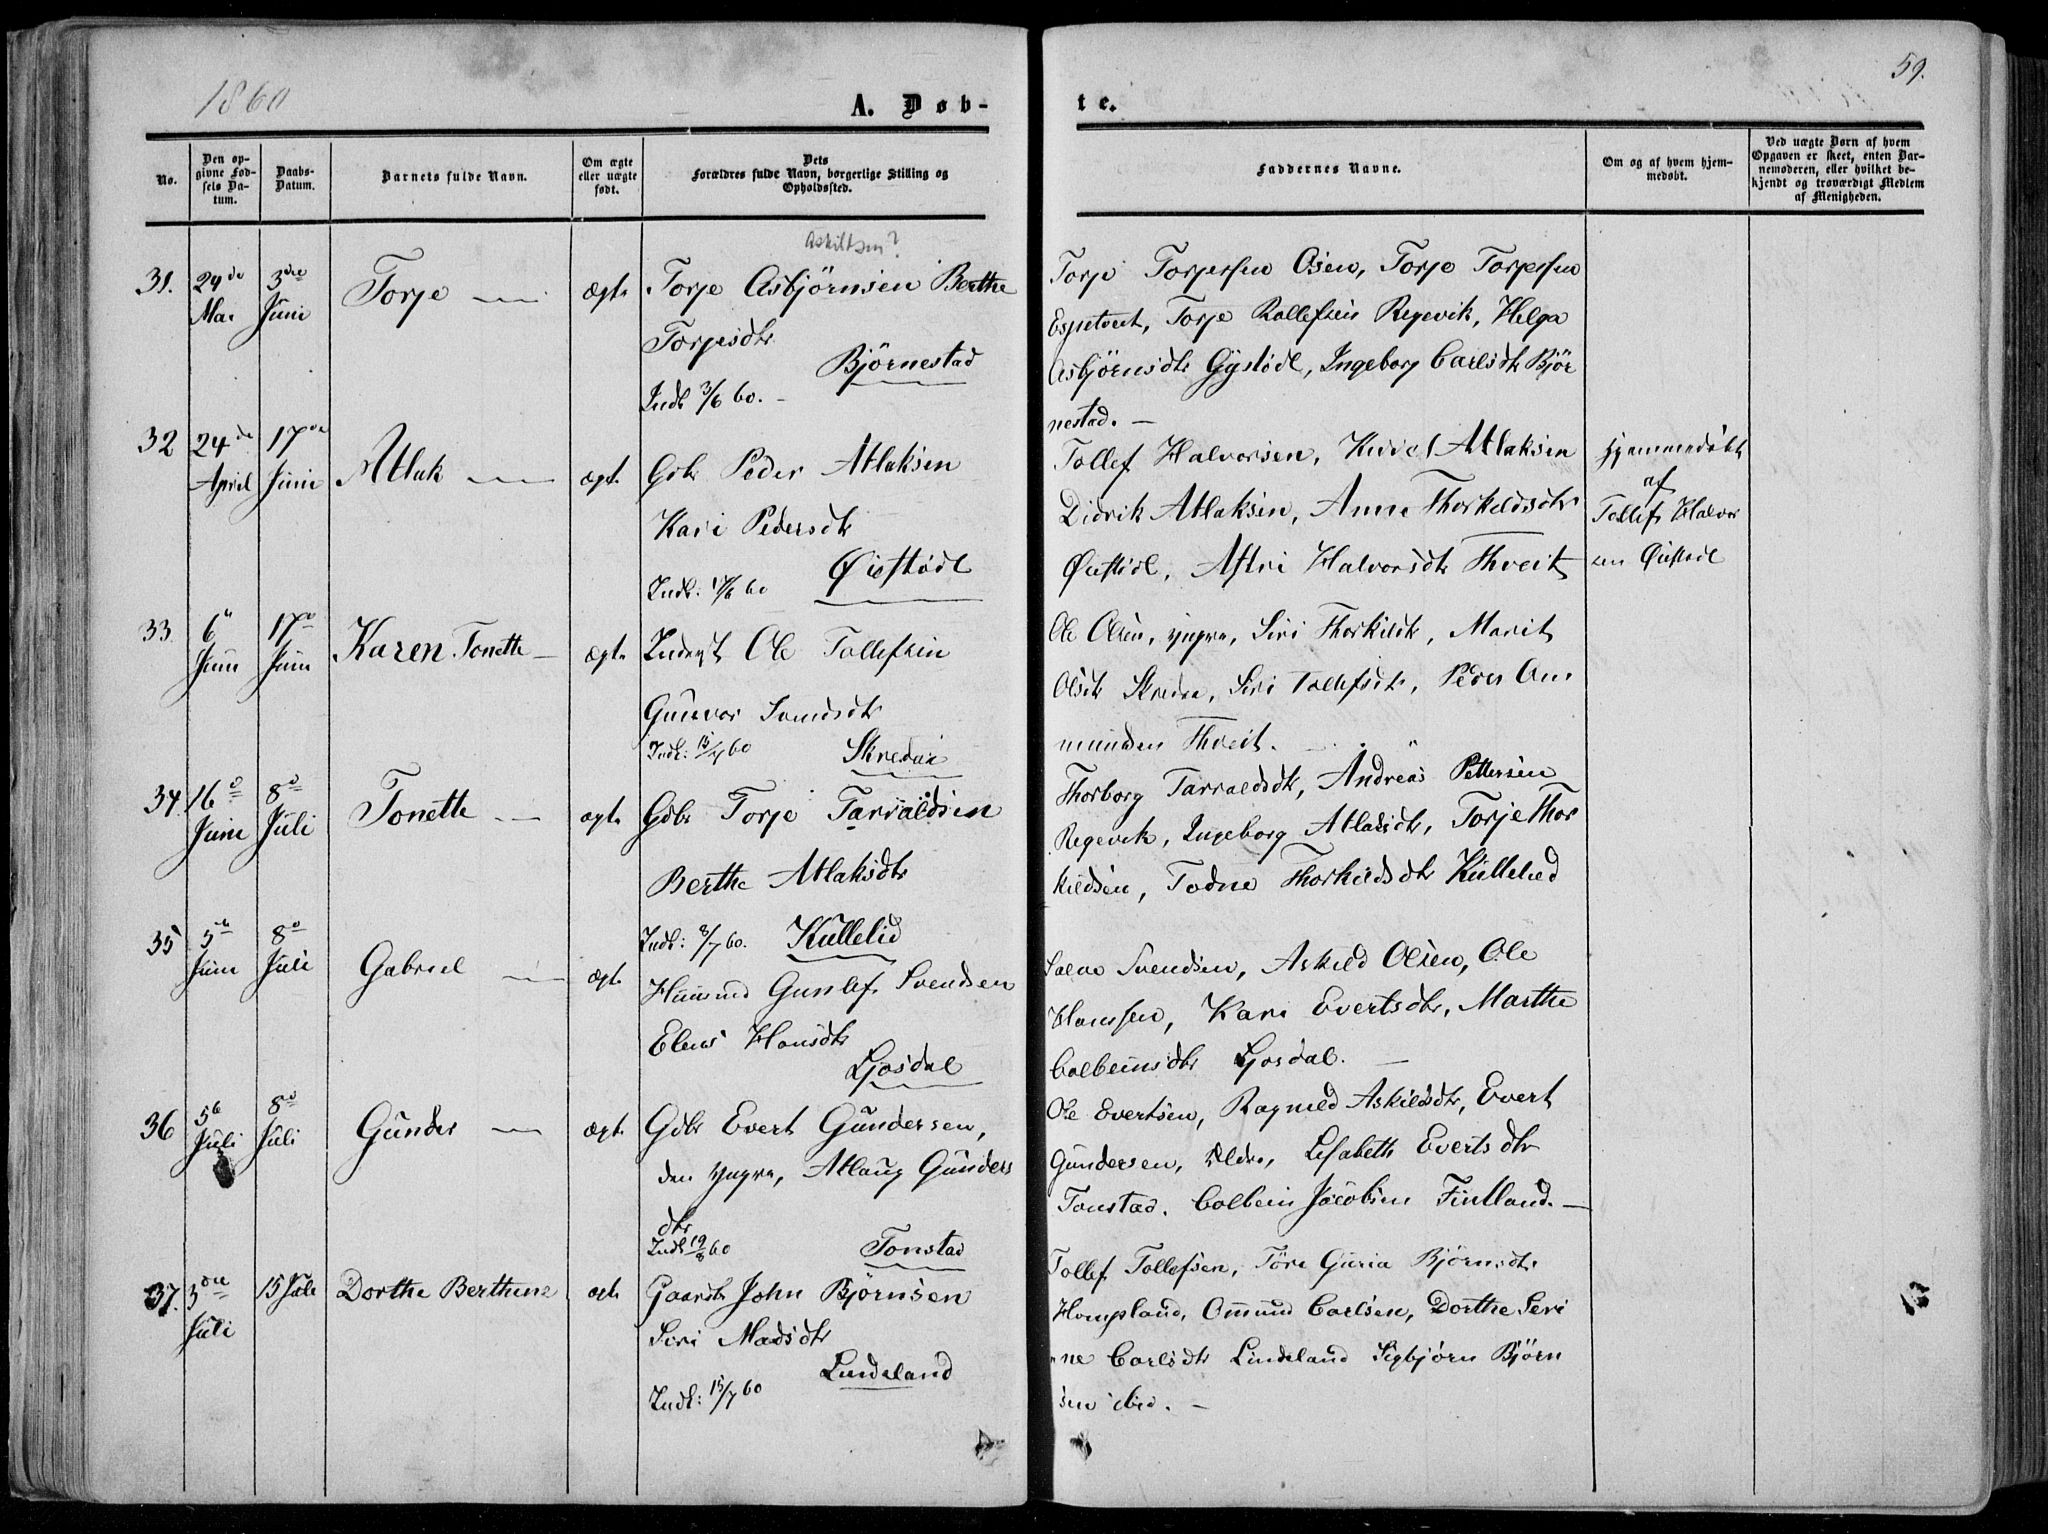 1860
A. Døb-
te.
59.
No.
Den op-
givne Fød-
sels Da-
tum.
Daabs-
Datum.
Barnets fulde Navn.
Om ægte
eller uægte
født.
Dets
Forældres fulde Navn, borgerlige Stilling og
Opholdssted.
Faddernes Navne.
Om og af hvem hjem-
medøbt.
Ved uægte Børn af hvem
Opgaven er skeet, enten Bar-
nemoderen, eller hvilket be-
kjendt og troværdigt Medlem
af Menigheden.
Askiltsen?
31. 24de 3die Torje ægte Torje Asbjörnsen Berthe
Mai Juni
Torjesdtr
Björnestad
Indb 3/6 60.
Torje Torjessen Osen, Torje Torjessen
Espetveet, Torje Rollefsen Regevik, Helga
Asbjörnsdtr Gystödl, Ingeborg Carlsdtr Björ
nestad.
32 24de 17de Atlak ægte Gbr Peder Atlaksen
April Juni
Kari Pedersdtr
Öistödl
Indb: 17/6 60
Tollef Halvorsen, Atlaksen
Didrik Atlaksen, Anne Thorkildsdtr
Öistödl, Astri Halvorsdtr Thveit
hjemmedöbt
af
Tollef Halvor
sen Öistödl
33 6te 17de Karen Tonette ægte Inderst Ole Tollefsen
Juni Juni
Gunvor Svendsdtr
Indb: 60 Skredaa
Ole Olsen, yngre, Siri Thorkildtr, Marit
Olsdtr Skredaa, Siri Tollefsdtr, Peder Om
mundsen Thveit.
34. 16de 8de Tonette ægte Gdbr Torje Tarraldsen
Juni Juli
Berthe Atlaksdtr
Indb: 8/7 60. Kullelid
Thorborg Tarraldsdtr, Andreas Pettersen
Regevik, Ingeborg Atlaksdtr, Torje Thor
kildsen, Todne Thorkildsdtr Kullelid
35 5te 8de Gabriel ægte Huusmd Gunlef Svendsen
Juni Juli
Elen Hansdtr
Ljosdal
Salve Svendsen, Askild Olsen, Ole
Hansen, Kari Evertsdtr, Marthe
Colbeinsdtr Ljosdal.
36 5te 8de Gunder ægte Gdbr Evert Gundersen,
Juli Juli
den yngre, Atlaug Gunders
dtr
Indb 19/8 60 Tonstad
Ole Evertsen, Ragnild Askildsdtr, Evert
Gundersen, ældre, Lisabeth Evertsdtr
Tonstad. Colbein Jacobsen Fintland.
37. 3die 15 Juli Dorthe Berthine ægte Gaardbr John Björnsen
Juli
Siri Madsdtr
Lindeland
Indb: 15/7 60
Tollef Tollefsen, Töre Guria Björnsdtr
Hompland, Omund Carlsen, Dorthe Seri
ne Carlsdtr Lindeland Sigbjörn Björn
sen ibid.